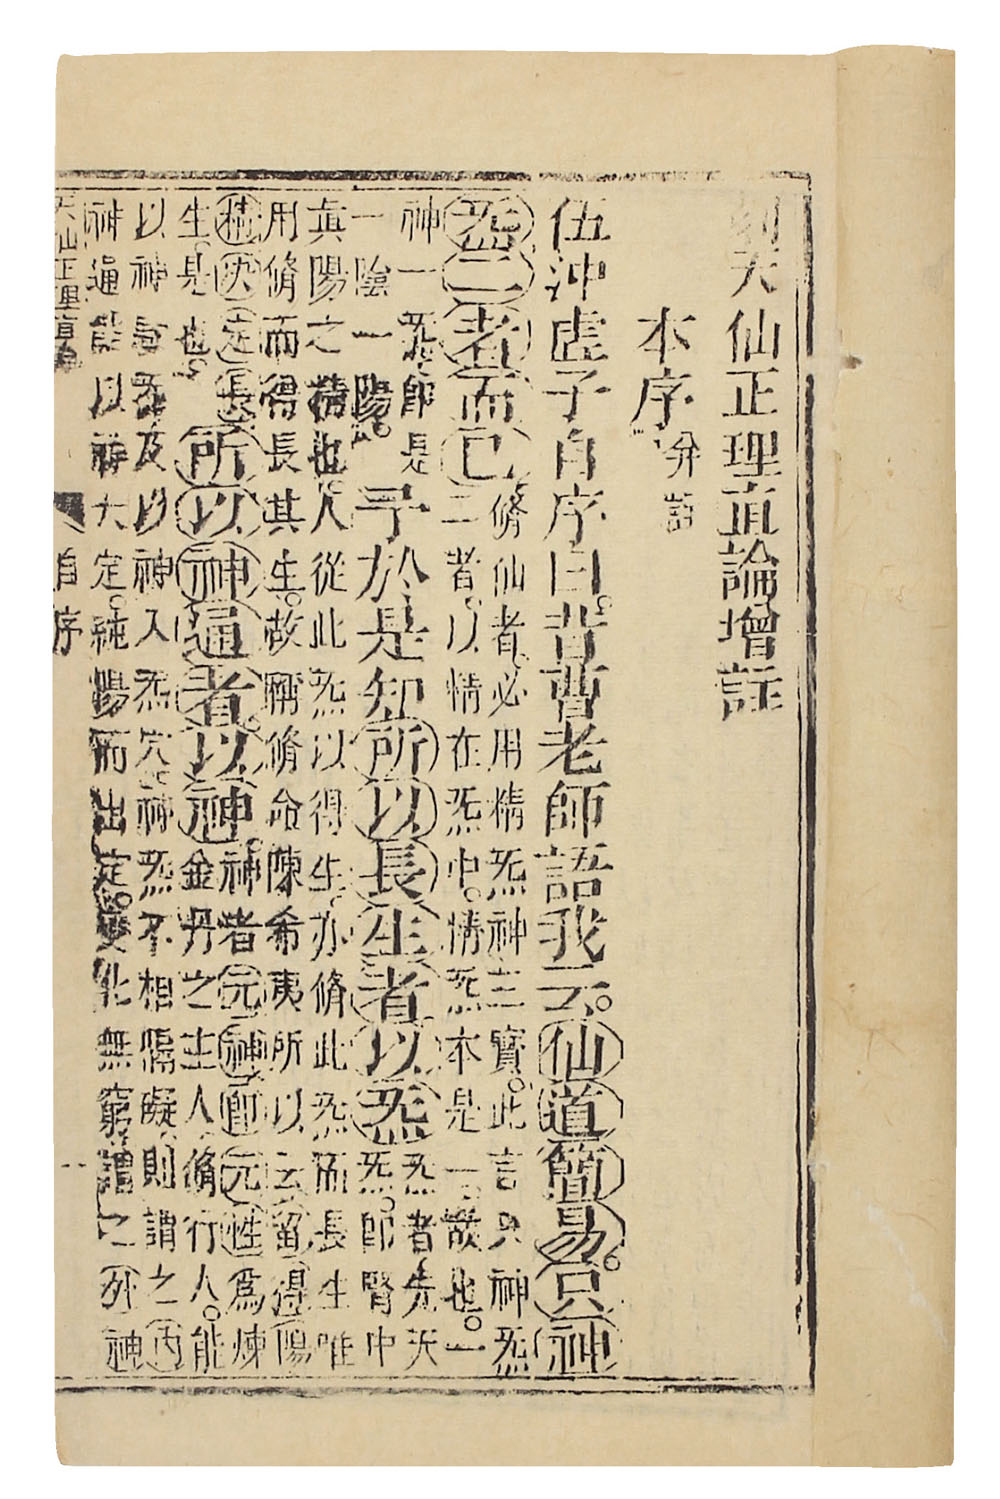 刻天仙正理直論增註
本序 并註
伍沖虛子自序曰。昔曹老師語我云。仙道簡易。只神
炁二者而已
脩仙者必用精炁神三寶。此言只神炁
二者。以精在炁中。精炁本是一。故也。一
神一炁。即是
一陰一陽。
予於是知所以長生者以炁
炁者先天
炁。即腎中
真陽之精也。人從此炁以得生。亦脩此炁而長生唯
用脩而得長其生。故稱脩命陳希夷所以云留得陽
精決定長
生。是也。
所以神通者。以神。
神者元神即元性為煉
金丹之主人。脩行人。能
以神馭炁及以神入炁穴。神炁不相隔礙。則謂之內
神通能以神大定。純陽而出定。變化無窮。謂之外神
天仙正理直論 自序